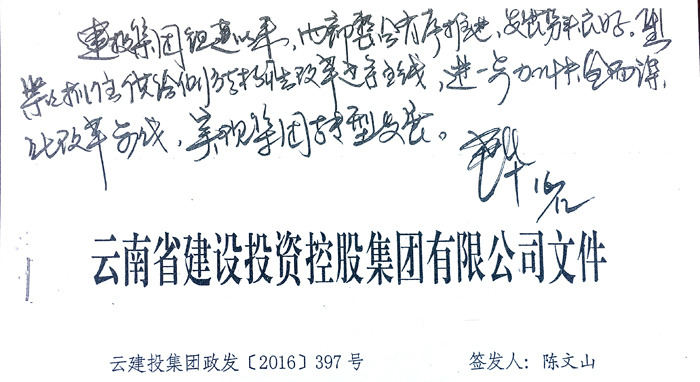 建投集团组建以来，内部整合有序推进，发展势头良好。望
紧紧抓住供给侧结构性改革这条主线，进一步加快全面深
化改革步伐，实现集团转型发展。
16/12
云南省建设投资控股集团有限公司文件
云建投集团政发〔2016〕397号 签发人：陈文山